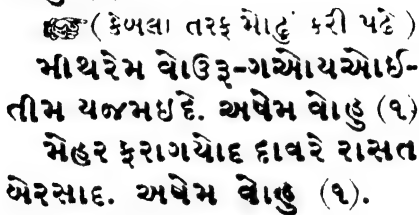 ☞ ( કેબલા તરફ મોઢું કરી પઢે )
મીથરેમ વોઉરૂ-ગઓયઓઈ-
તીમ યજમઇદે. અષેમ વોહુ (૧)
મેહર ફરાગયોદ દાવરે રાસત
બેરસાદ. અષેમ વોહુ (૧).